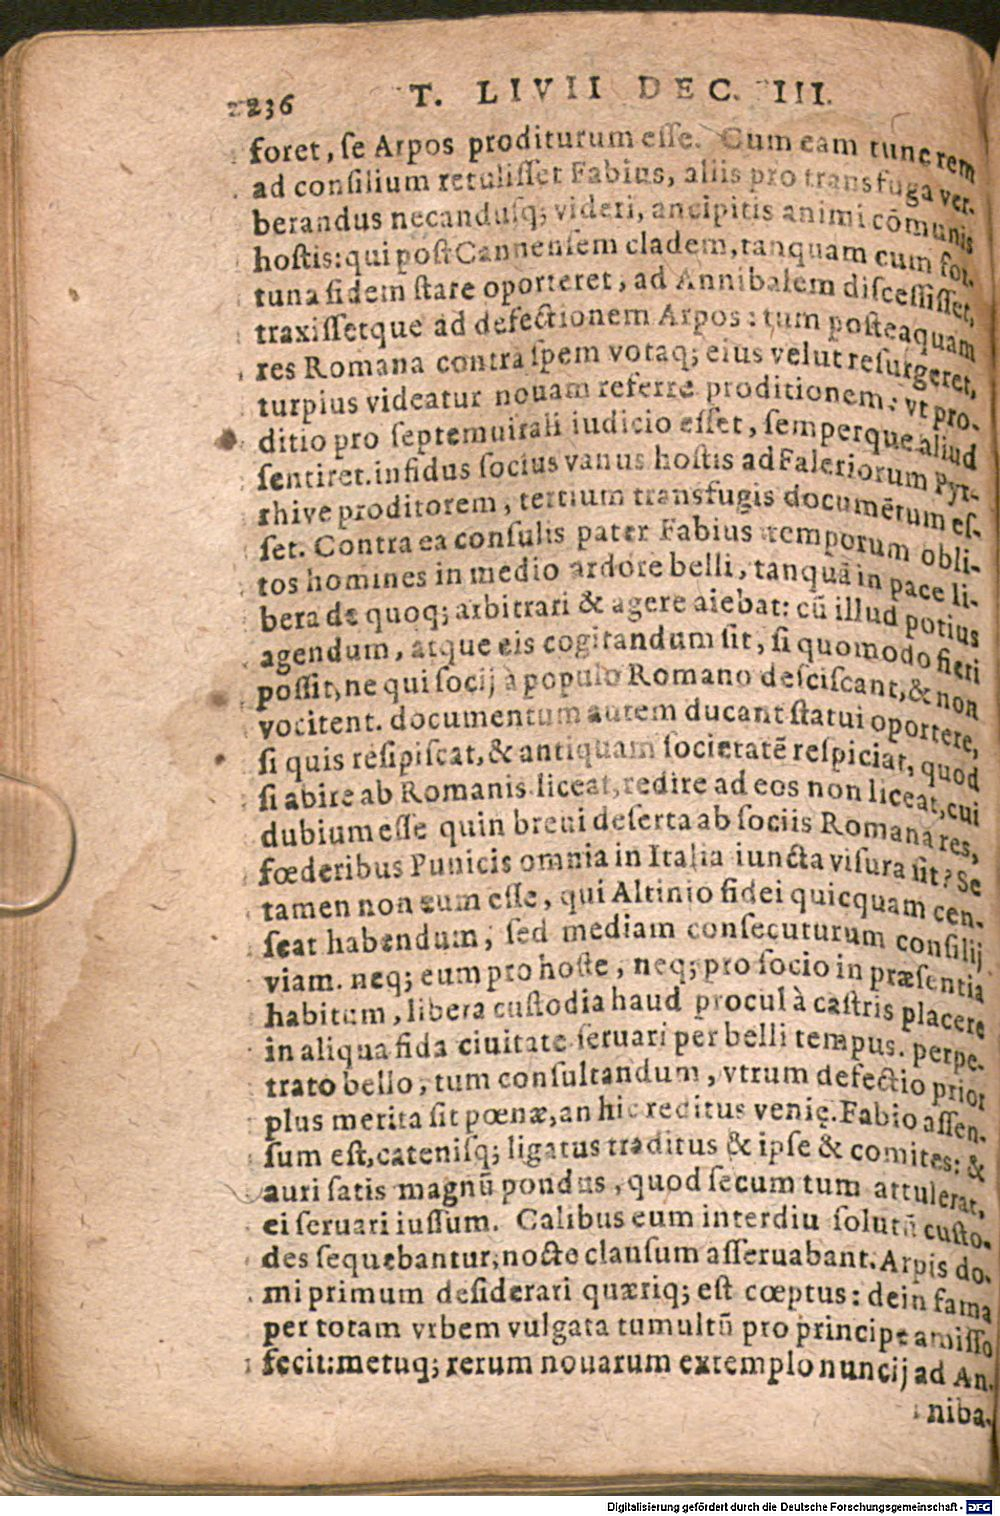 236 T. LIVII DEC. III.
foret, ſe Arpos proditurum eſſe. Cum eam tunc rem
ad conſilium retuliſſet Fabius, aliis pro transfuga ver-
berandus necanduſq; videri, ancipitis animi cōmunis
hoſtis: qui poſt Cannenſem cladem, tanquam cum for-
tuna fidem ſtare oporteret, ad Annibalem diſceſſiſſet,
traxiſſetque ad defectionem Arpos: tum poſteaquam
res Romana contra ſpem votaq; eius velut reſurgeret,
turpius videatur nouam referre proditionem: vt pro-
ditio pro ſeptemuirali iudicio eſſet, ſemperque aliud
ſentiret. infidus ſocius vanus hoſtis ad Faleriorum Pyr-
rhive proditorem, tertium transfugis documētum eſ-
ſet. Contra ea conſulis pater Fabius temporum obli-
tos homines in medio ardore belli, tanquā in pace li-
bera de quoq; arbitrari & agere aiebat: cū illud potius
agendum, atque eis cogitandum ſit, ſi quomodo fieri
poſſit, ne qui ſocij à populo Romano deſciſcant, & non
vocitent. documentum autem ducant ſtatui oportere,
ſi quis reſipiſcat, & antiquam ſocietatē reſpiciat, quod
ſi abire ab Romanis liceat, redire ad eos non liceat, cui
dubium eſſe quin breui deſerta ab ſociis Romana res,
fœderibus Punicis omnia in Italia iuncta viſura ſit? Se
tamen non eum eſſe, qui Altinio fidei quicquam cen-
ſeat habendum, ſed mediam conſecuturum conſilij
viam. neq; eum pro hoſte, neq; pro ſocio in præſentia
habitum, libera cuſtodia haud procul à caſtris placere
in aliqua fida ciuitate ſeruari per belli tempus. perpe-
trato bello, tum conſultandum, vtrum defectio prior
plus merita ſit pœnæ, an hic reditus venię. Fabio aſſen-
ſum eſt, cateniſq; ligatus traditus & ipſe & comites: &
auri ſatis magnū pondus, quod ſecum tum attulerat,
ei ſeruari iuſſum. Calibus eum interdiu ſolutū cuſto-
des ſequebantur, nocte clauſum aſſeruabant. Arpis do-
mi primum deſiderari quæriq; eſt cœptus: dein fama
per totam vrbem vulgata tumultū pro principe amiſſo
fecit: metuq; rerum nouarum extemplo nuncij ad An-
niba-
Digitalisierung gefördert durch die Deutsche Forschungsgemeinschaft - DFG